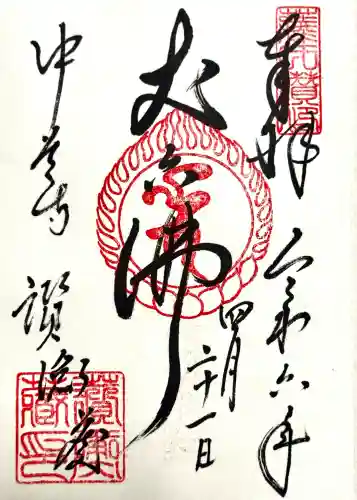 奉拝
令和六年
四月二十一日
丈六佛
中尊寺
讃衡蔵